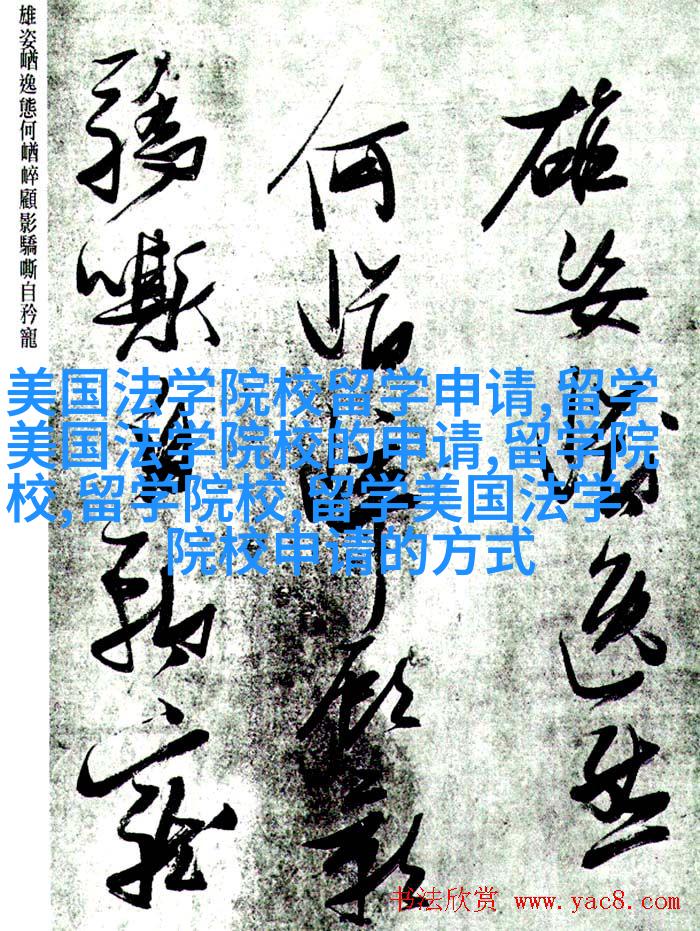 雄姿崷逸態
何崷崪顧影
驕嘶自矜寵
雄姿崷逸態何崷崪顧影驕嘶自矜寵
美国法学院校留学申请,留学
美国法学院校的申请,留学院
校,留学院校,留学美国法学
院校申请的方式
书法欣赏 www.yac8.com